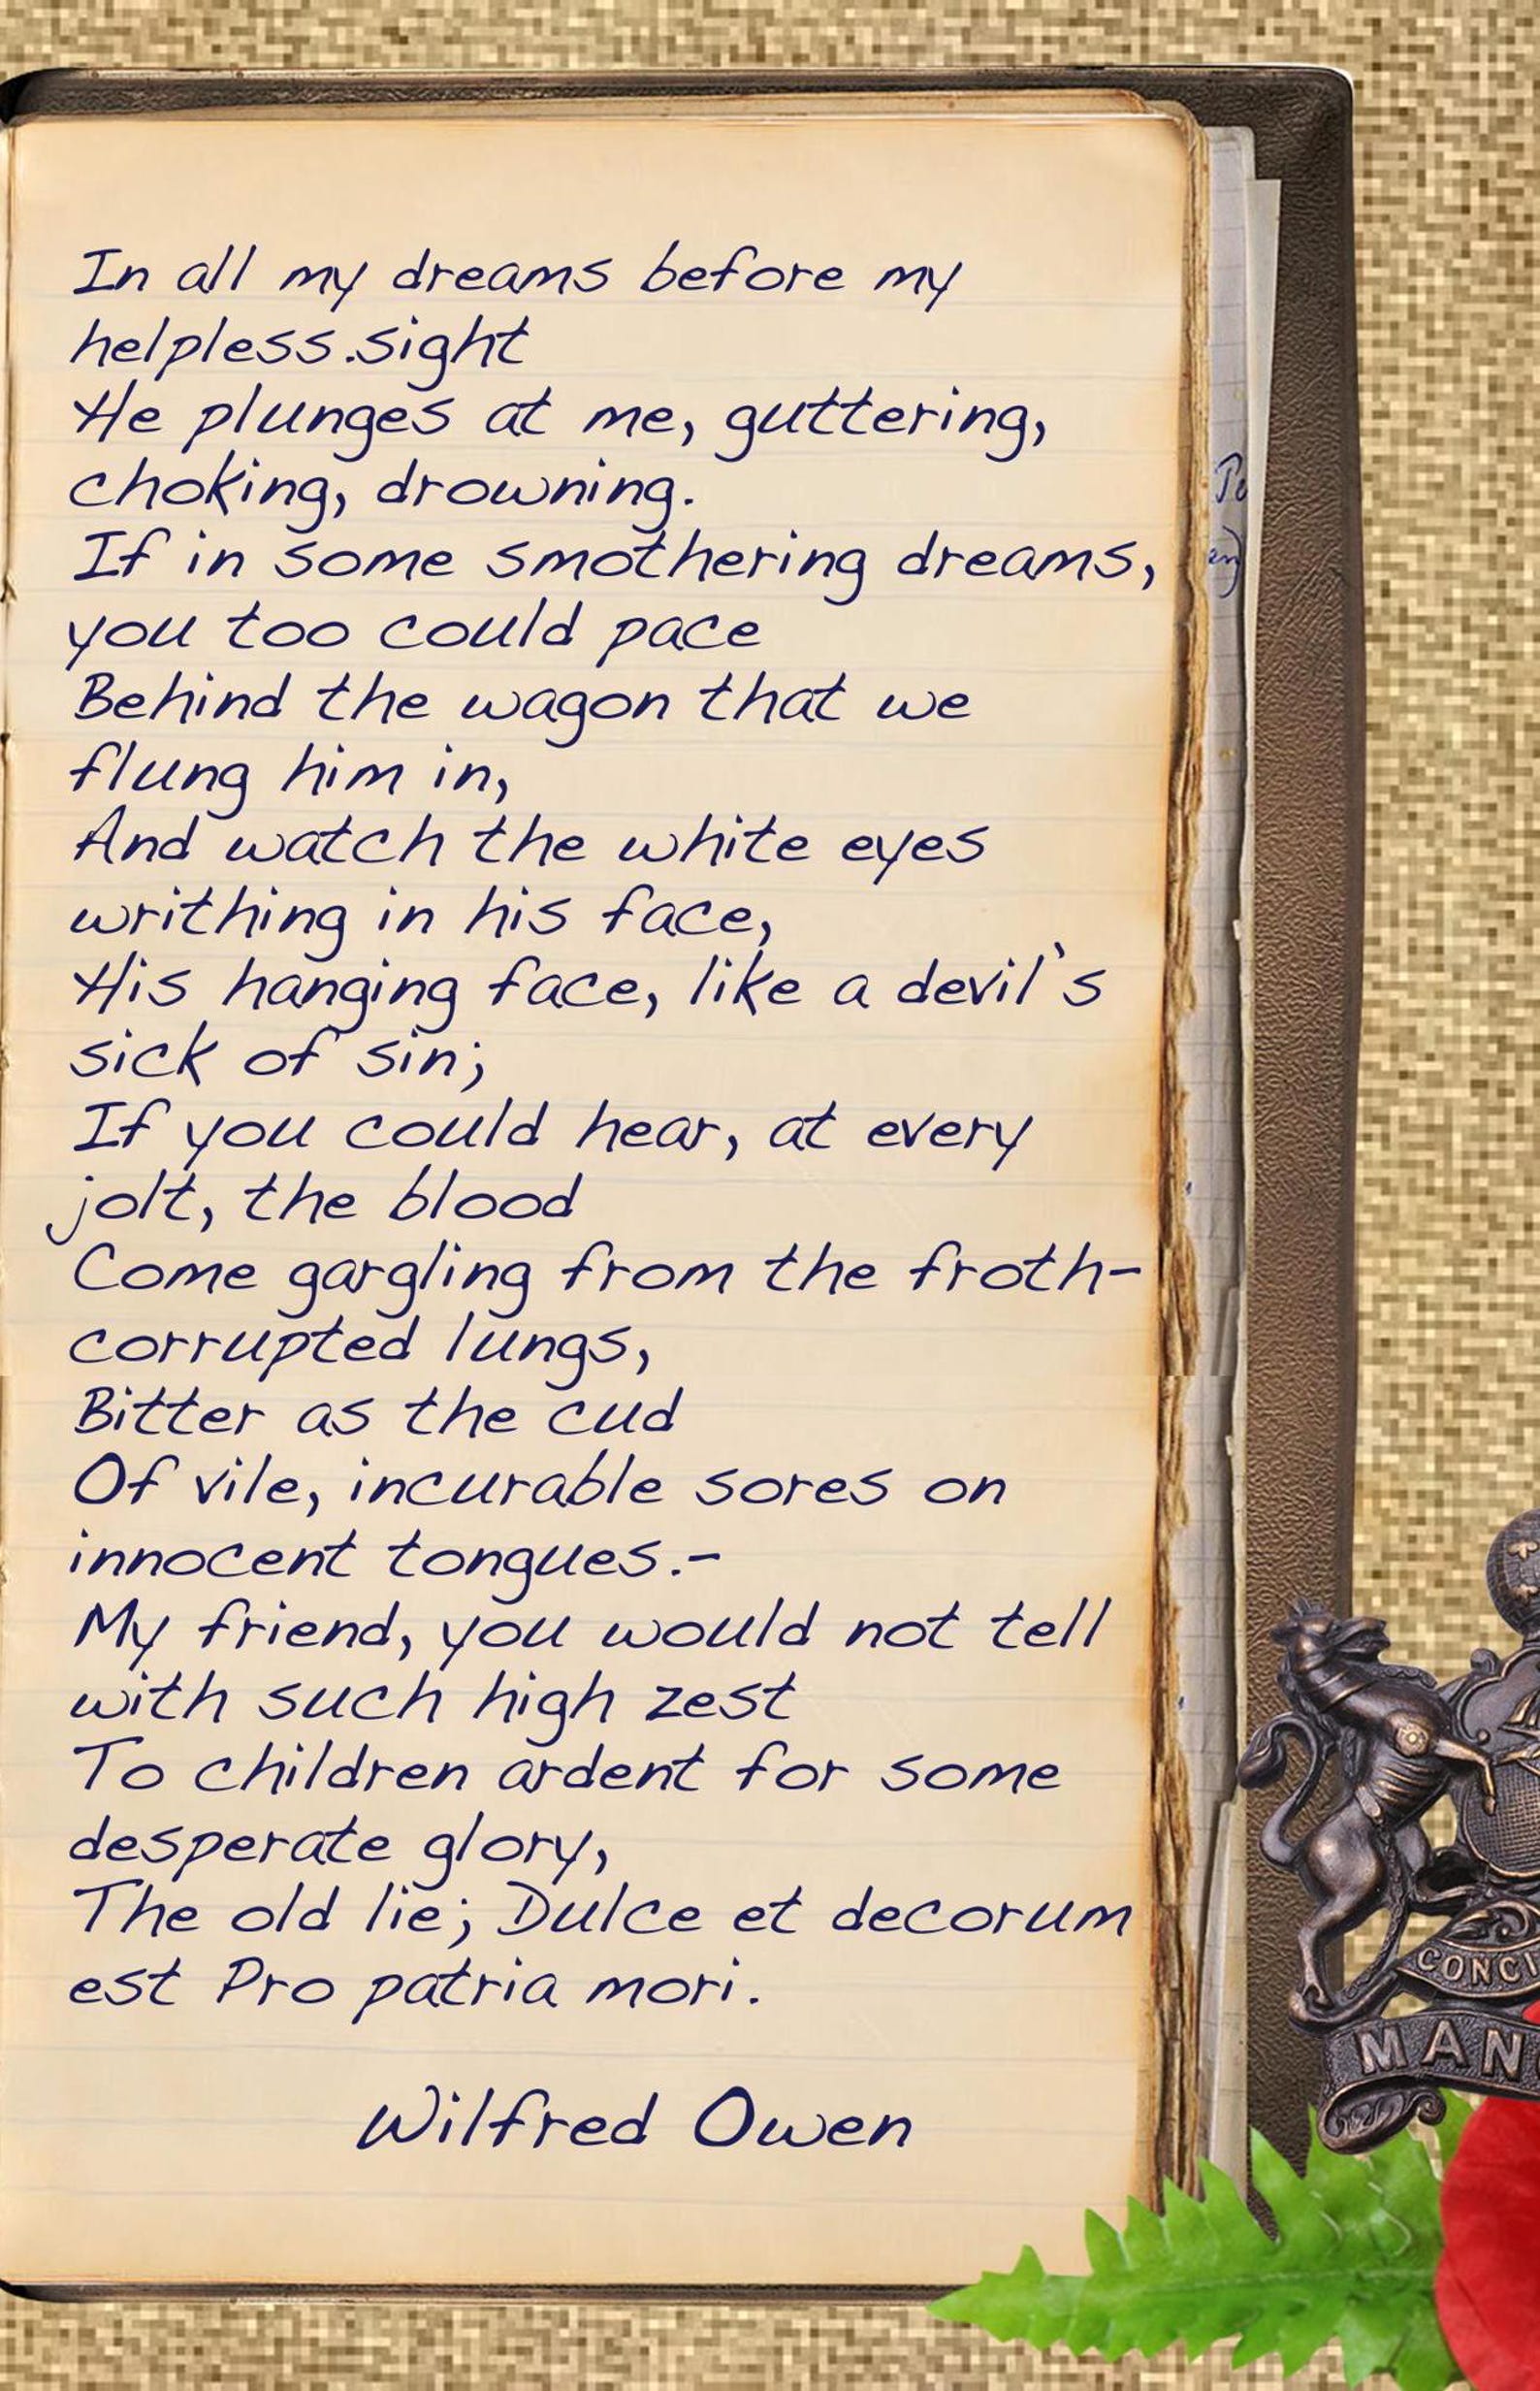 In all my dreams before my
helpless.sight
He plunges at me, guttering,
choking, drowning.
If in some smothering dreams,
you too could pace
Behind the wagon that we
flung him in,
And watch the white eyes
writhing in his face,
His hanging face, like a devil's
sick of sin;
If you could hear, at every
jolt, the blood
Come gargling from the froth-
corrupted lungs,
Bitter as the cud
Of vile, incurable sores on
innocent tongues.-
My friend, you would not tell
with such high zest
To children ardent for some
desperate glory,
The old lie; Dulce et decorum
est Pro patria mori.
Wilfred Owen
CONCI
MAN